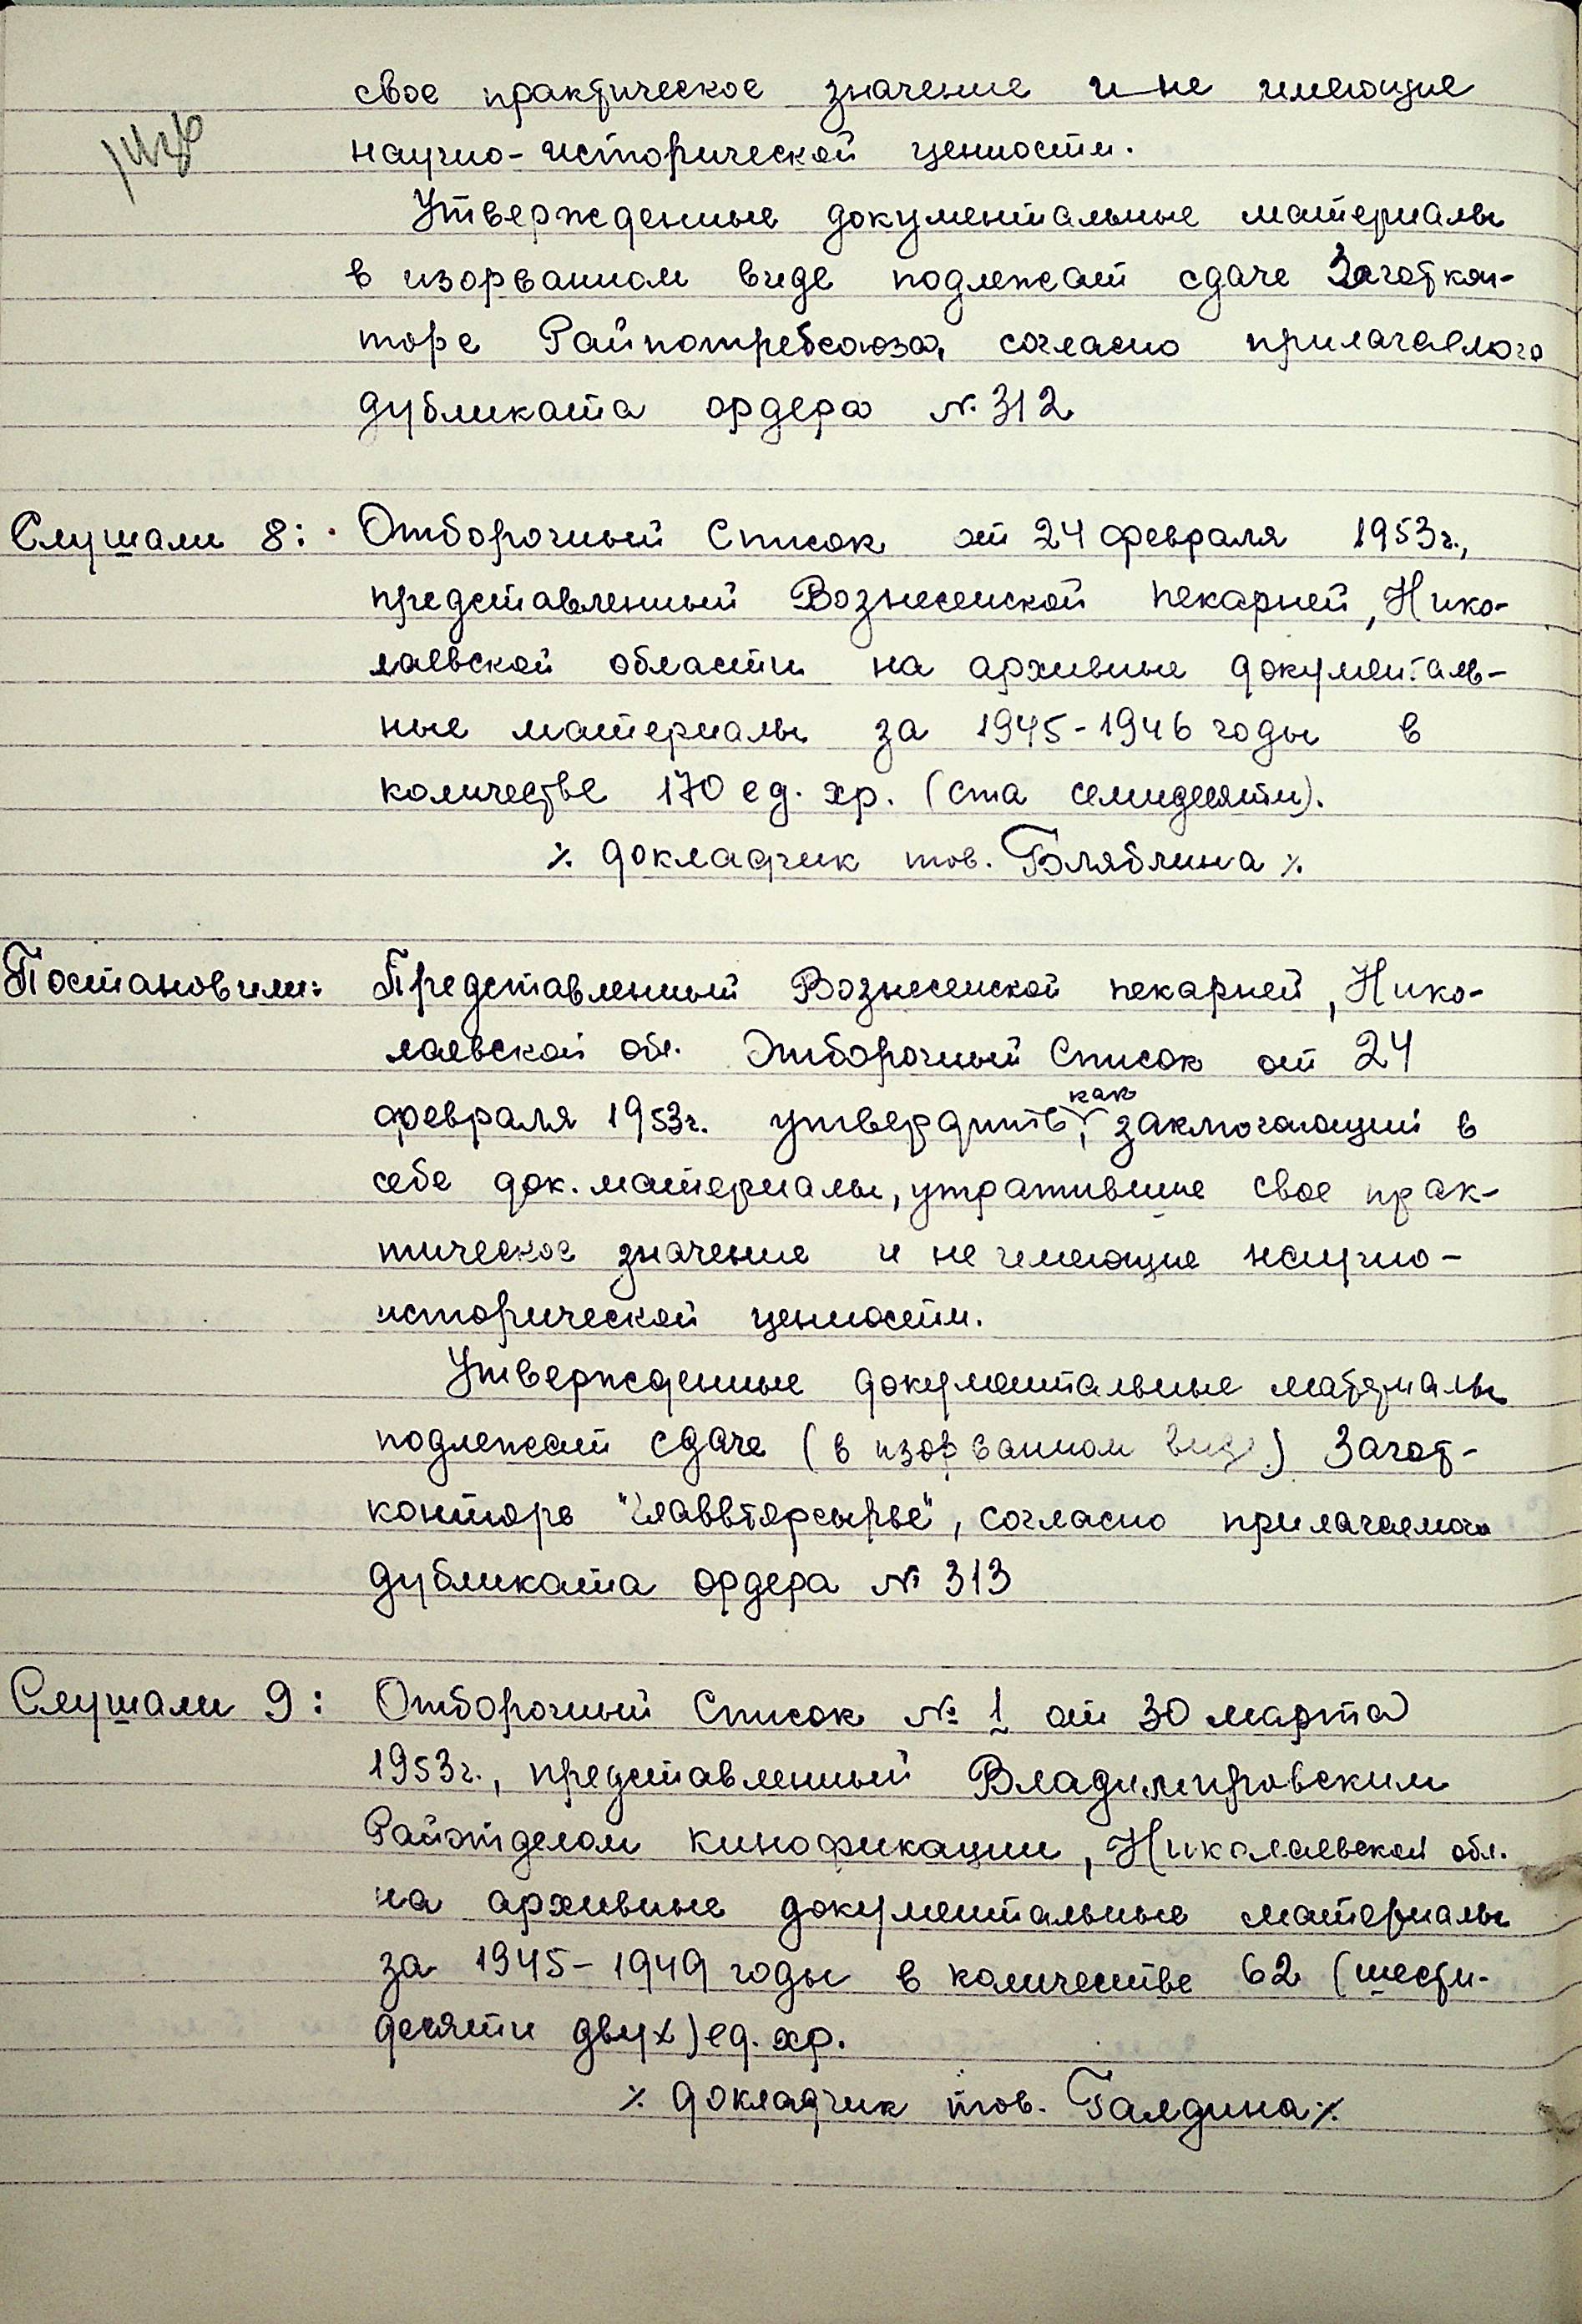 свое практическое значение и не имеющие
научно-исторической ценности.
Утвержденные документальные материалы
в изорванном виде подлежат сдаче Заготкон-
торе Райпотребсоюза, согласно прилагаемого
дубликата ордера № 312
Слушали 8: Отборочный Список от 24 февраля 1953г.,
представленный Вознесенской пекарней, Нико-
лаевской области на архивные документаль-
ные материалы за 1945-1946 годы в
количестве 170 ед. хр. (ста семидесяти).
٪ докладчик тов. Бляблина ٪
Постановили: Представленный Вознесенской пекарней, Нико-
лаевской обл. Отборочный Список от 24
февраля 1953г. утвердить, как заключающий в
себе док. материалы, утратившие свое прак-
тическое значение и не имеющие научно-
исторической ценности.
Утвержденные документальные материалы
подлежат сдаче (в изорванном виде) Загот-
конторе "Главвторсырье", согласно прилагаемого
дубликата ордера № 313
Слушали 9: Отборочный Список № 1 от 30 марта
1953г., представленный Владимировским
Райотделом кинофикации, Николаевской обл.
на архивные документальные материалы
за 1945-1949 годы в количестве 62 (шести-
десяти двух) ед. хр.
٪ докладчик тов. Галдина ٪